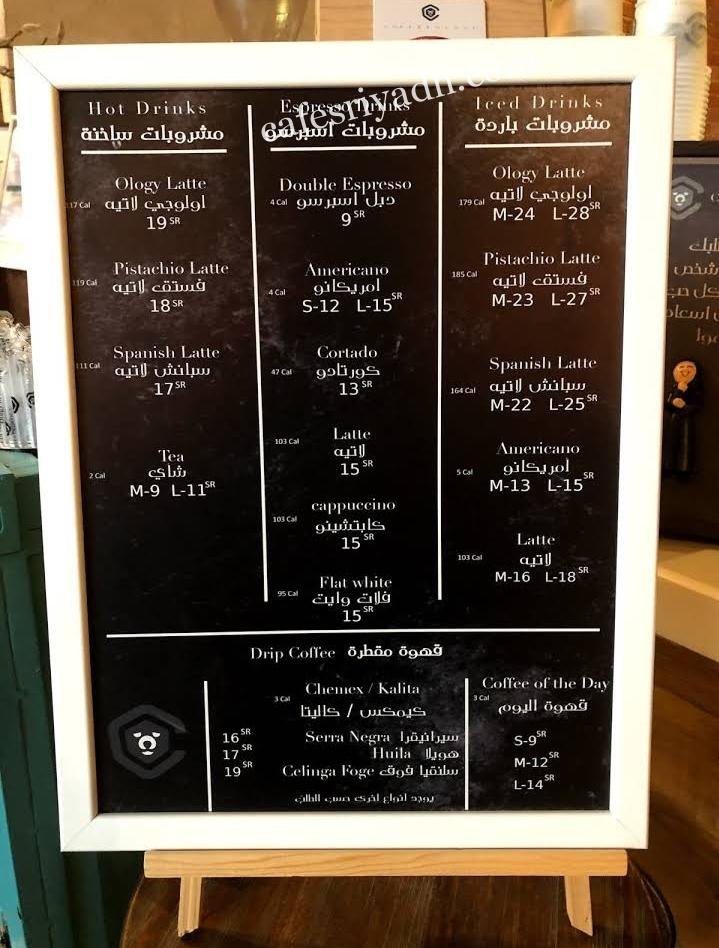 cafesriyadh.c
Hot Drinks
مشروبات ساخنة
Ology Latte
17 Cal اولوجي لاتيه
19 SR
Pistachio Latte
119 Cal فستق لاتيه
18 SR
Spanish Latte
111 Cal سبانش لاتيه
17 SR
Tea
2 Cal شاي
M-9 L-11 SR
Espresso Drinks
مشروبات اسبرسو
Double Espresso
4 Cal دبل اسبرسو
9 SR
Americano
4 Cal امريكانو
S-12 L-15 SR
Cortado
47 Cal كورتادو
13 SR
Latte
103 Cal لاتيه
15 SR
cappuccino
103 Cal كابتشينو
15 SR
Flat white
95 Cal فلات وايت
15 SR
Iced Drinks
مشروبات باردة
Ology Latte
179 Cal اولوجي لاتيه
M-24 L-28 SR
Pistachio Latte
185 Cal فستق لاتيه
M-23 L-27 SR
Spanish Latte
164 Cal سبانش لاتيه
M-22 L-25 SR
Americano
5 Cal أمريكانو
M-13 L-15 SR
Latte
103 Cal لاتيه
M-16 L-18 SR
Drip Coffee قهوة مقطرة
Chemex / Kalita
3 Cal كيمكس / كاليتا
16 SR Serra Negra سيرانيقرا
17 SR Huila هويلا
19 SR Celinga Foge سلنقيا فوق
يوجد انواع اخرى حسب الطلب
Coffee of the Day
3 Cal قهوة اليوم
S-9 SR
M-12 SR
L-14 SR